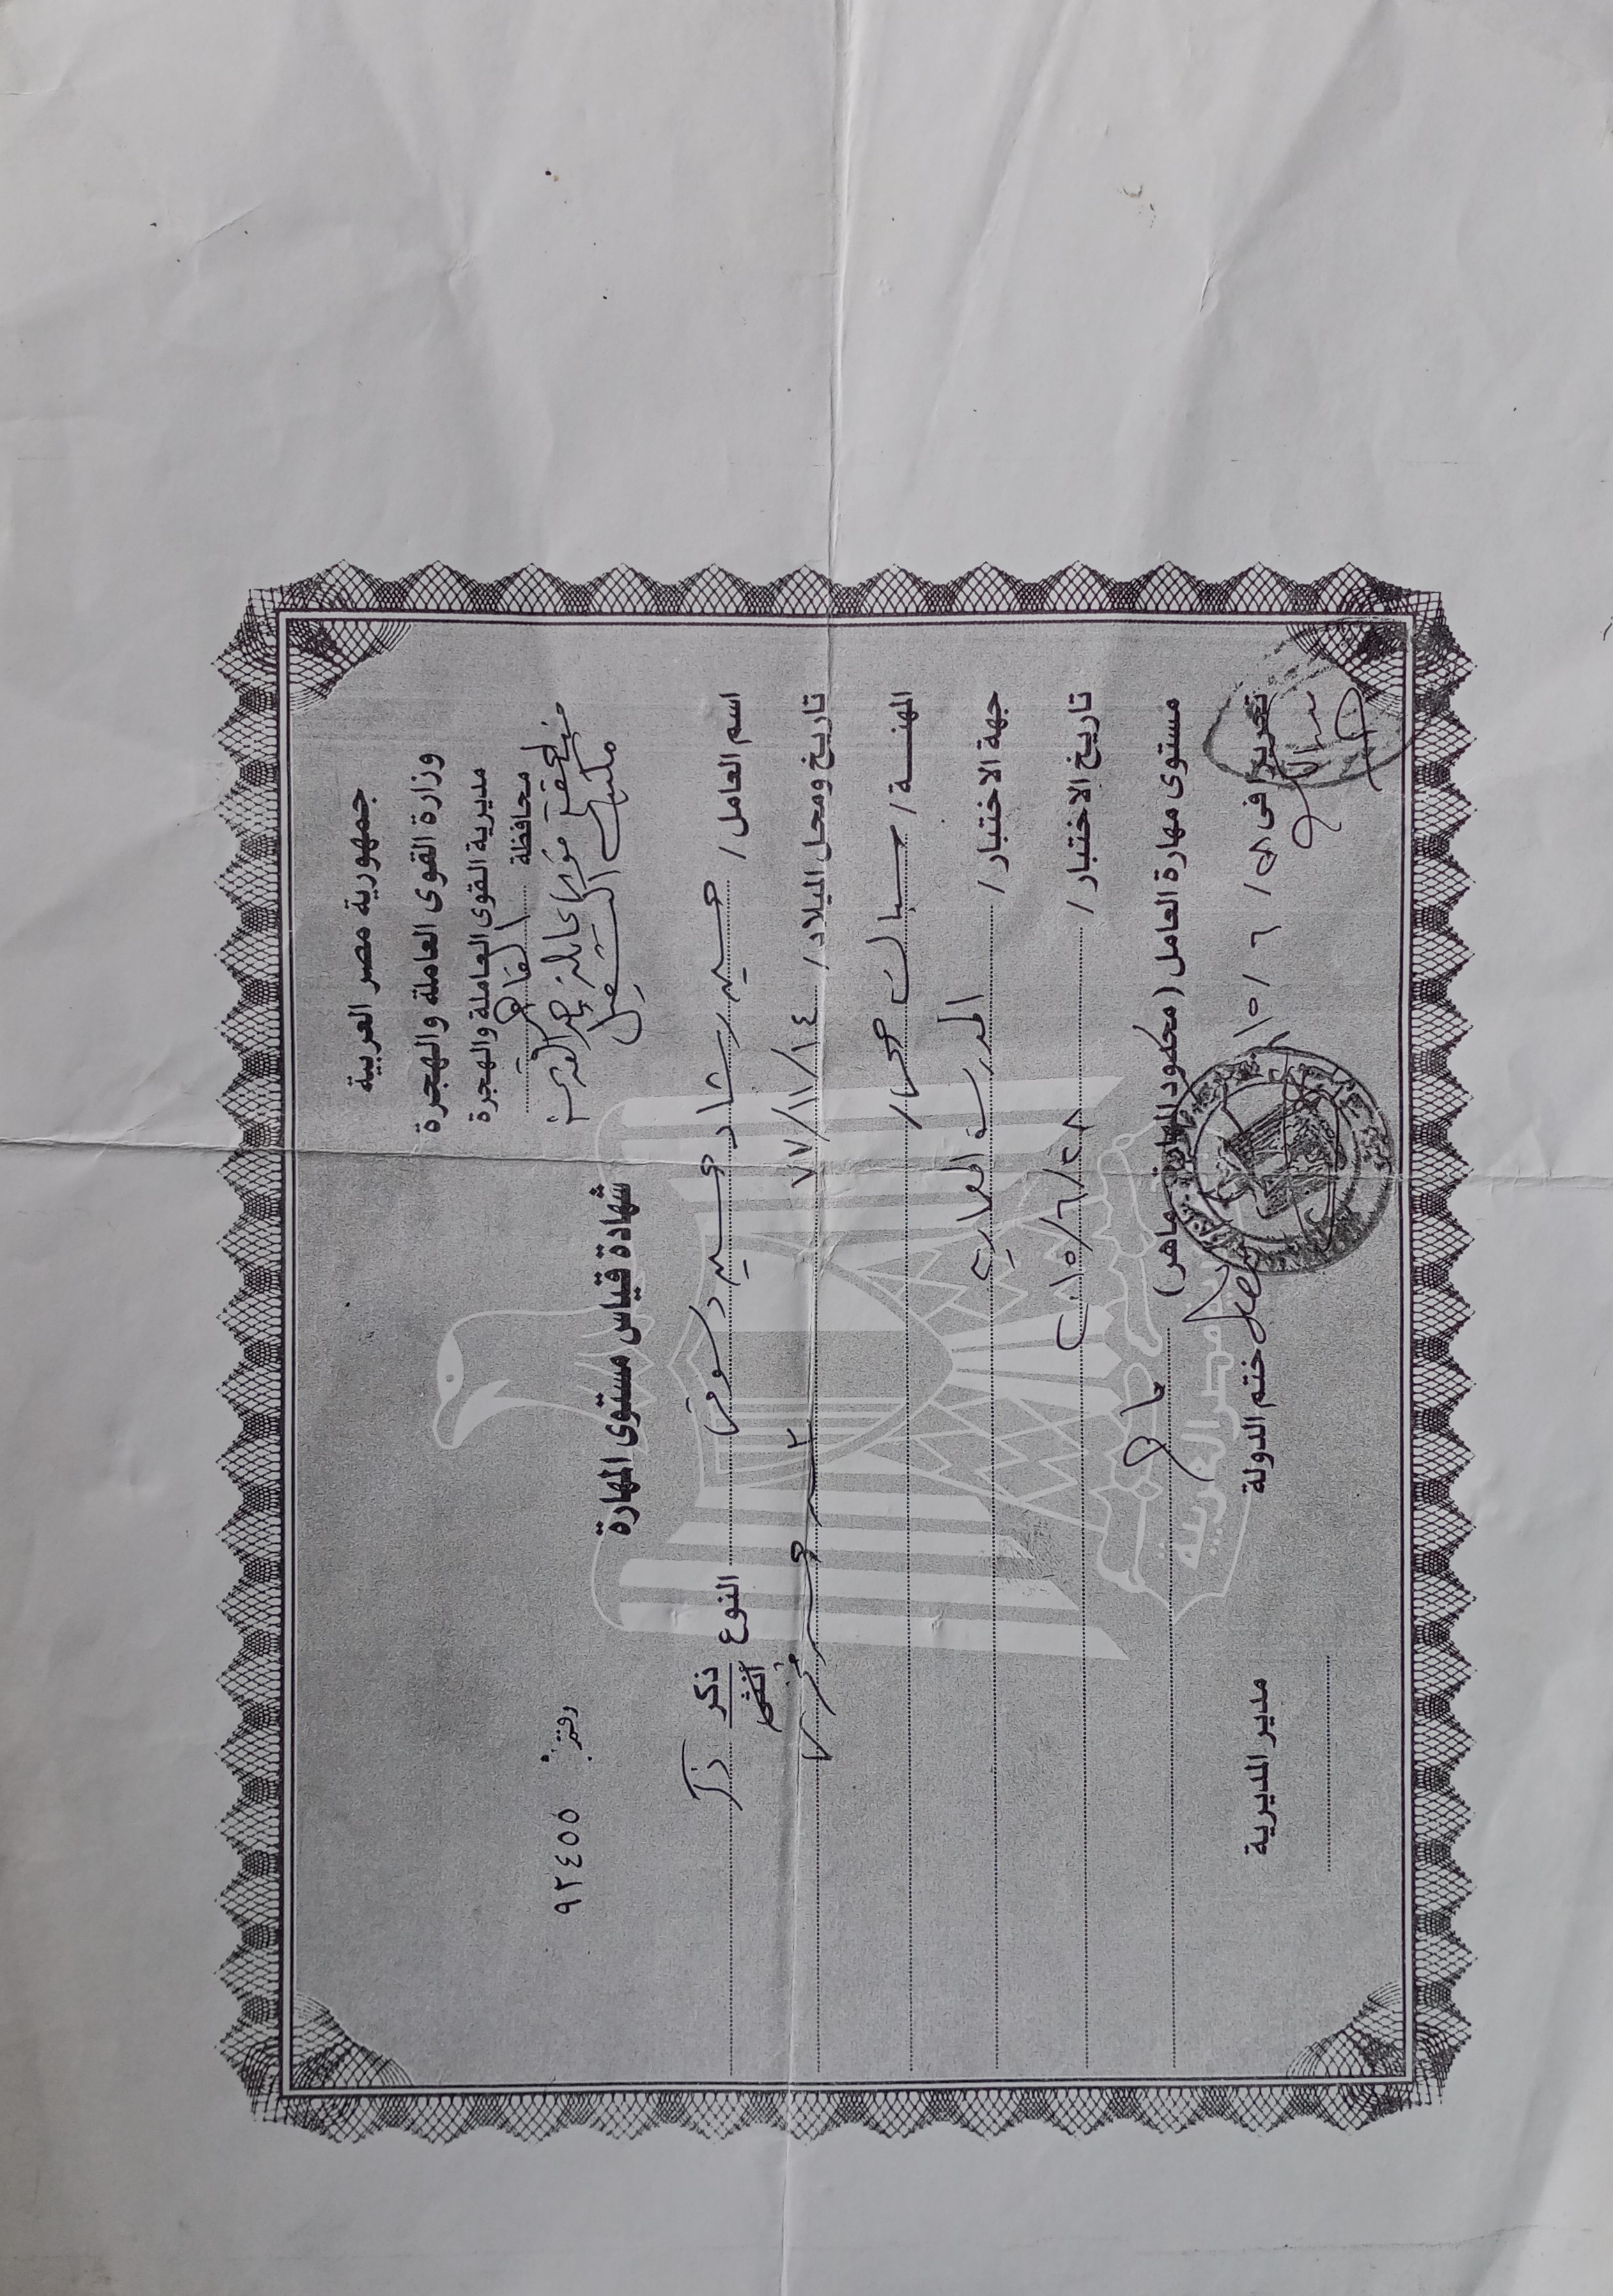 جمهورية مصر العربية
وزارة القوى العاملة والهجرة
مديرية القوى العاملة والهجرة
محافظة القاهرة
منطقة قوى عاملة
مكتب التشغيل
رقم ٩٢٤٥٥
شهادة قياس مستوى المهارة
اسم العامل / حسين رشاد حسين دسوقى النوع ذكر أنثى ذكر
تاريخ ومحل الميلاد / ٧٧/١١/١٤
المهنة / سباك صحى
جهة الاختبار / المدرسة المعمارية
تاريخ الاختبار / ٢٠١٥/٦/٢٨
مستوى مهارة العامل ( محدود المهارة - ماهر ) ماهر
تحريرا فى ٢٨ / ٦ / ١٥ ختم الدولة مدير المديرية
جمهورية مصر العربية